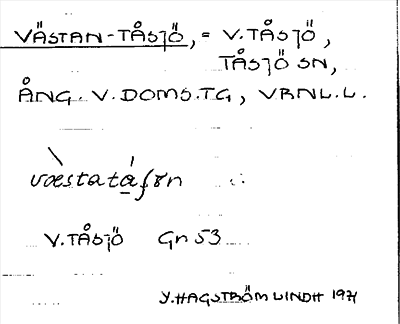 VÄSTAN-TÅSJÖ, = V.TÅSJÖ,
TÅSJÖ SN,
ÅNG. V. DOMS.TG, VRNL.L.
V.TÅSJÖ Gn 53
Y.HAGSTRÖM LINDH 1971